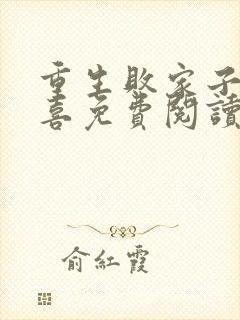 重生敗家子
喜免費閱讀
俞紅霞